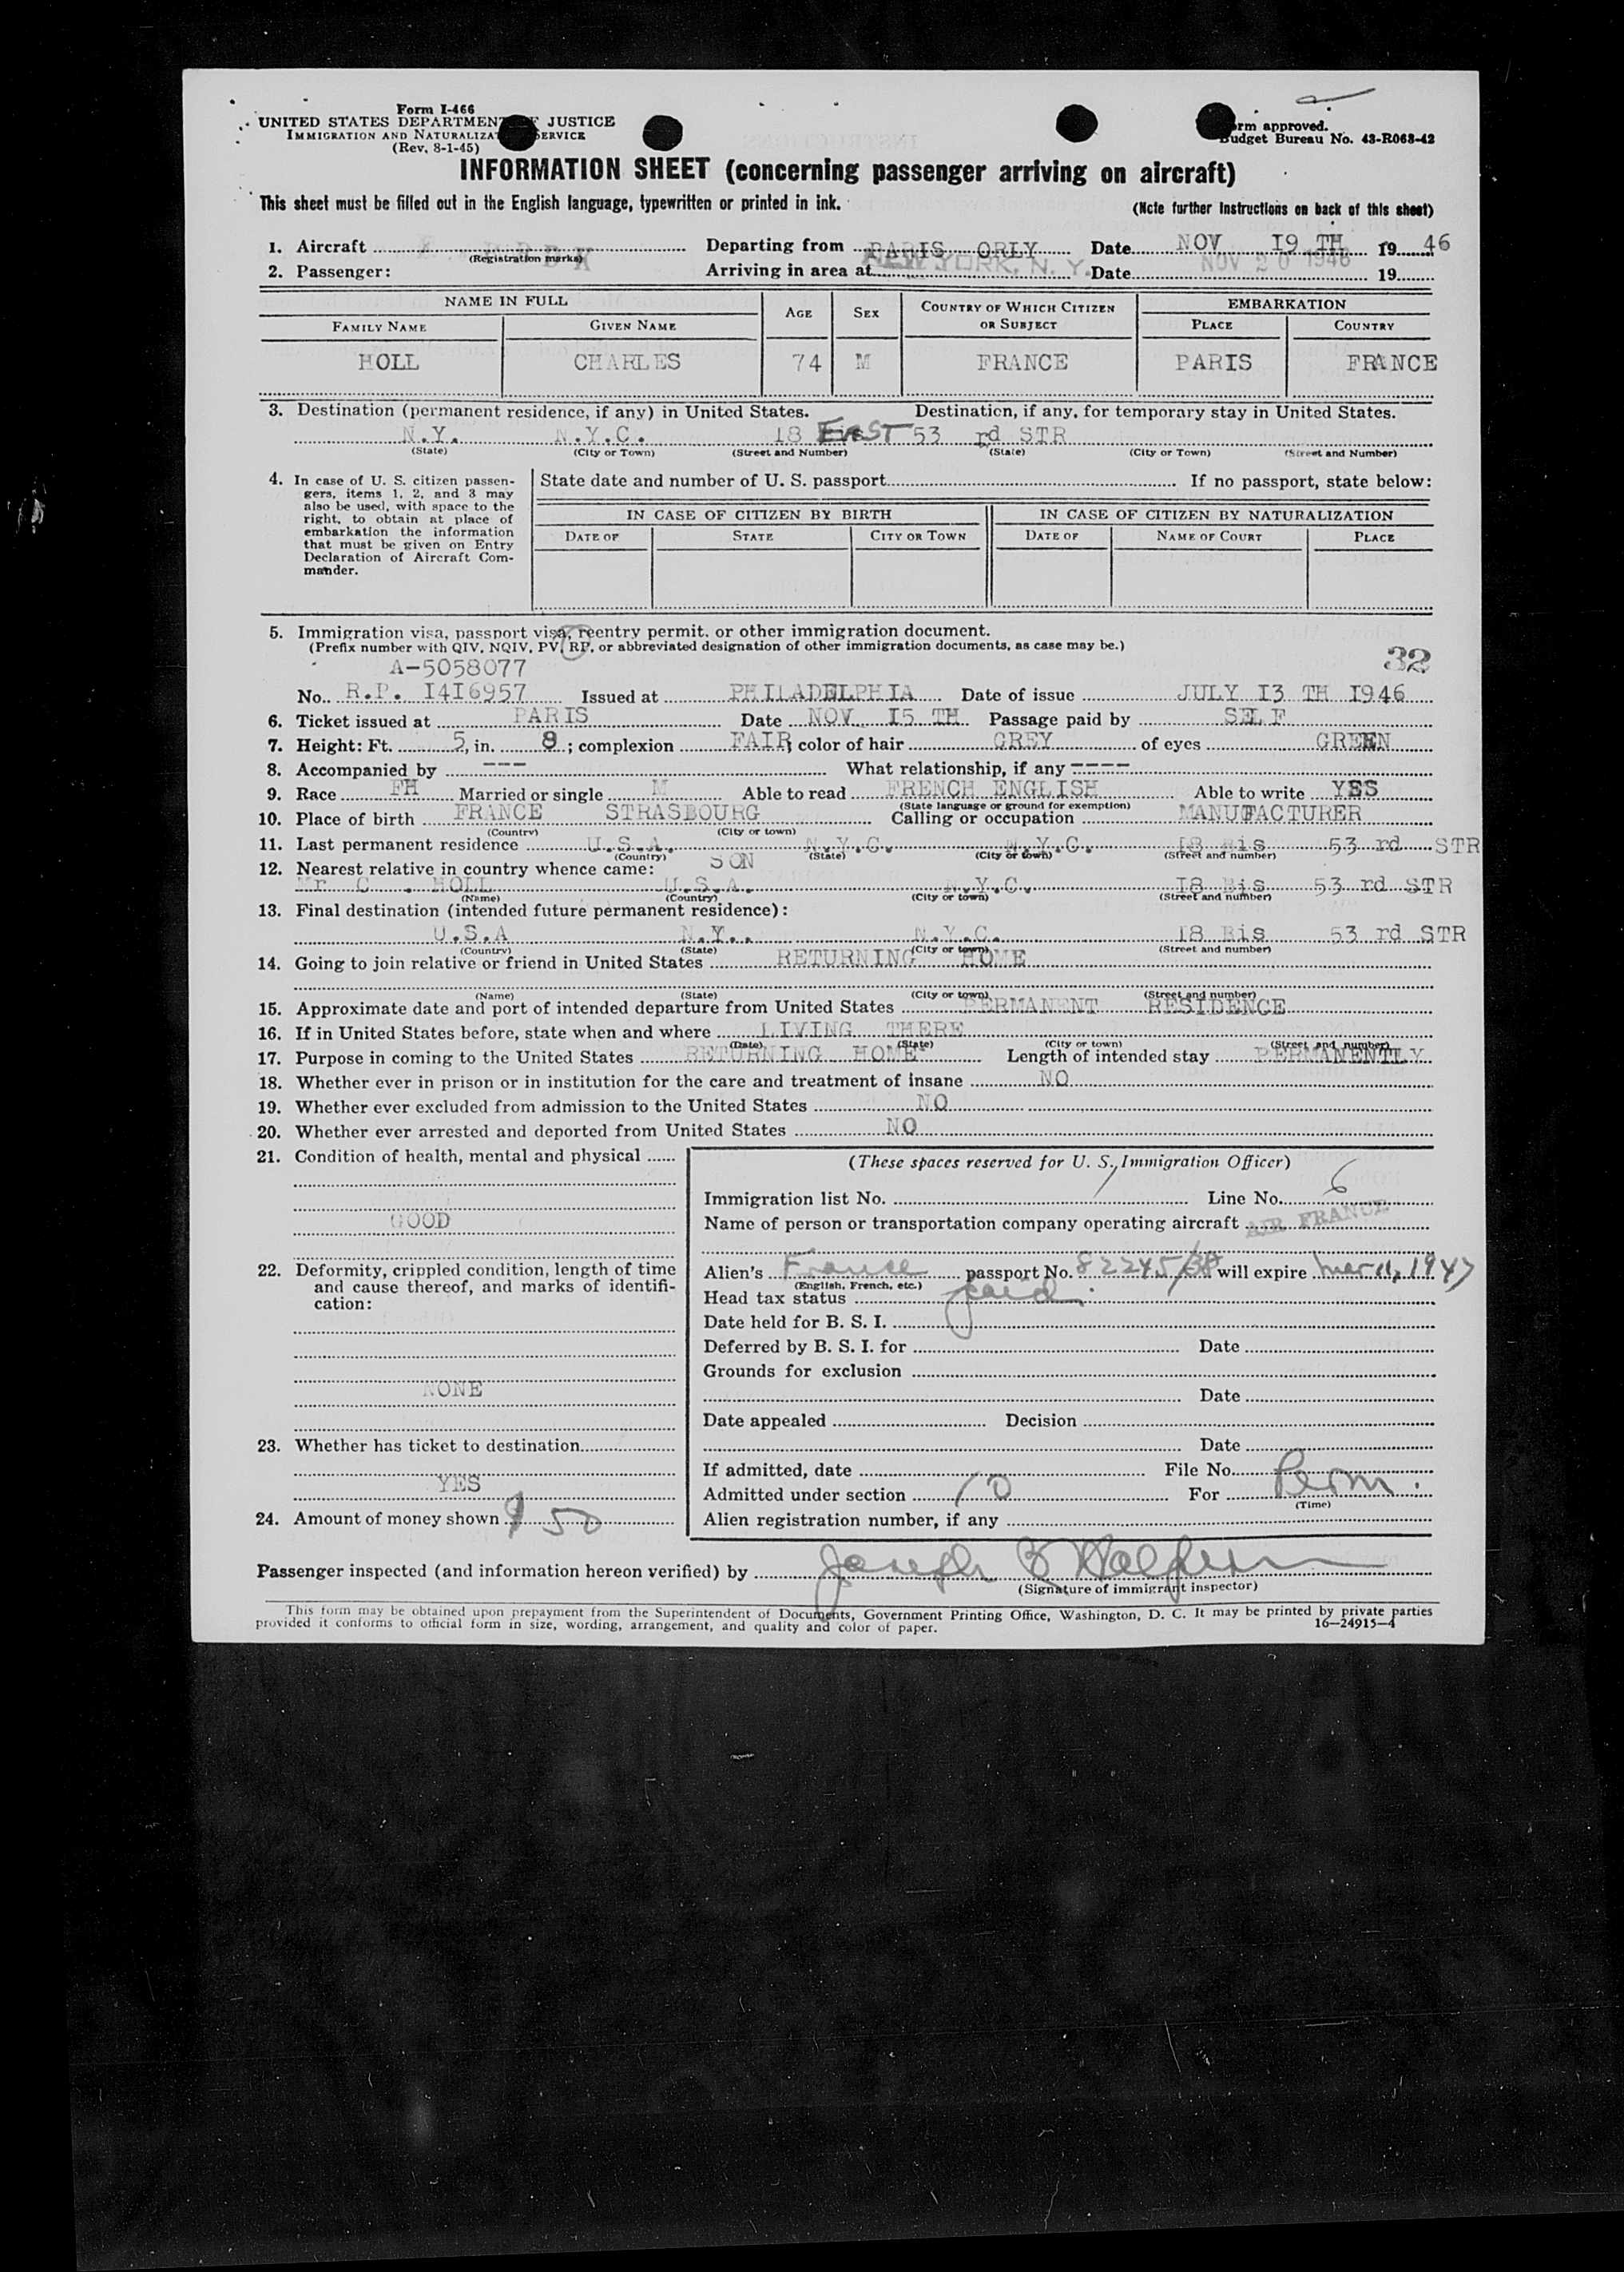 Form I-466
UNITED STATES DEPARTMENT OF JUSTICE
IMMIGRATION AND NATURALIZATION SERVICE
(Rev. 8-1-45)
Form approved.
Budget Bureau No. 43-R068-42
INFORMATION SHEET (concerning passenger arriving on aircraft)
This sheet must be filled out in the English language, typewritten or printed in ink.
(Note further instructions on back of this sheet)
1. Aircraft (Registration marks) Departing from PARIS ORLY Date NOV 19 TH 19 46
2. Passenger: Arriving in area at NEW YORK, N. Y. Date NOV 20 1946 19
NAME IN FULL AGE SEX COUNTRY OF WHICH CITIZEN OR SUBJECT EMBARKATION
FAMILY NAME GIVEN NAME PLACE COUNTRY
HOLL CHARLES 74 M FRANCE PARIS FRANCE
3. Destination (permanent residence, if any) in United States. Destination, if any, for temporary stay in United States.
N.Y. N.Y.C. 18 EAST 53 rd STR
(State) (City or Town) (Street and Number) (State) (City or Town) (Street and Number)
4. In case of U. S. citizen passengers, items 1, 2, and 3 may also be used, with space to the right, to obtain at place of embarkation the information that must be given on Entry Declaration of Aircraft Commander.
State date and number of U. S. passport If no passport, state below:
IN CASE OF CITIZEN BY BIRTH IN CASE OF CITIZEN BY NATURALIZATION
DATE OF STATE CITY OR TOWN DATE OF NAME OF COURT PLACE
5. Immigration visa, passport visa, reentry permit, or other immigration document.
(Prefix number with QIV, NQIV, PV, RP, or abbreviated designation of other immigration documents, as case may be.)
32
A-5058077
No. R.P. I4I6957 Issued at PHILADELPHIA Date of issue JULY I3 TH I946
6. Ticket issued at PARIS Date NOV I5 TH Passage paid by SELF
7. Height: Ft. 5, in. 8; complexion FAIR; color of hair GREY of eyes GREEN
8. Accompanied by --- What relationship, if any ----
9. Race FH Married or single M Able to read FRENCH ENGLISH Able to write YES
(State language or ground for exemption)
10. Place of birth FRANCE STRASBOURG Calling or occupation MANUFACTURER
(Country) (City or town)
11. Last permanent residence U.S.A. N.Y.C. N.Y.C. I8 Bis 53 rd STR
(Country) (State) (City or town) (Street and number)
12. Nearest relative in country whence came: SON
Mr C . HOLL U.S.A. N.Y.C. I8 Bis 53 rd STR
(Name) (Country) (City or town) (Street and number)
13. Final destination (intended future permanent residence):
U.S.A N.Y.. N.Y.C. I8 Bis 53 rd STR
(Country) (State) (City or town) (Street and number)
14. Going to join relative or friend in United States RETURNING HOME
(Name) (State) (City or town) (Street and number)
15. Approximate date and port of intended departure from United States PERMANENT RESIDENCE
16. If in United States before, state when and where LIVING THERE
(Date) (State) (City or town) (Street and number)
17. Purpose in coming to the United States RETURNING HOME Length of intended stay PERMANENTLY
18. Whether ever in prison or in institution for the care and treatment of insane NO
19. Whether ever excluded from admission to the United States NO
20. Whether ever arrested and deported from United States NO
21. Condition of health, mental and physical
GOOD
22. Deformity, crippled condition, length of time and cause thereof, and marks of identification:
NONE
23. Whether has ticket to destination
YES
24. Amount of money shown $ 50
(These spaces reserved for U. S. Immigration Officer)
Immigration list No. Line No. 6
Name of person or transportation company operating aircraft AIR FRANCE
Alien's France passport No. 82245/38 will expire Mar 11, 1947
(English, French, etc.)
Head tax status paid.
Date held for B. S. I.
Deferred by B. S. I. for Date
Grounds for exclusion
Date
Date appealed Decision
Date
If admitted, date File No.
Admitted under section 10 For Perm.
(Time)
Alien registration number, if any
Passenger inspected (and information hereon verified) by Joseph B Halpern
(Signature of immigrant inspector)
This form may be obtained upon prepayment from the Superintendent of Documents, Government Printing Office, Washington, D. C. It may be printed by private parties
provided it conforms to official form in size, wording, arrangement, and quality and color of paper. 16—24915-4